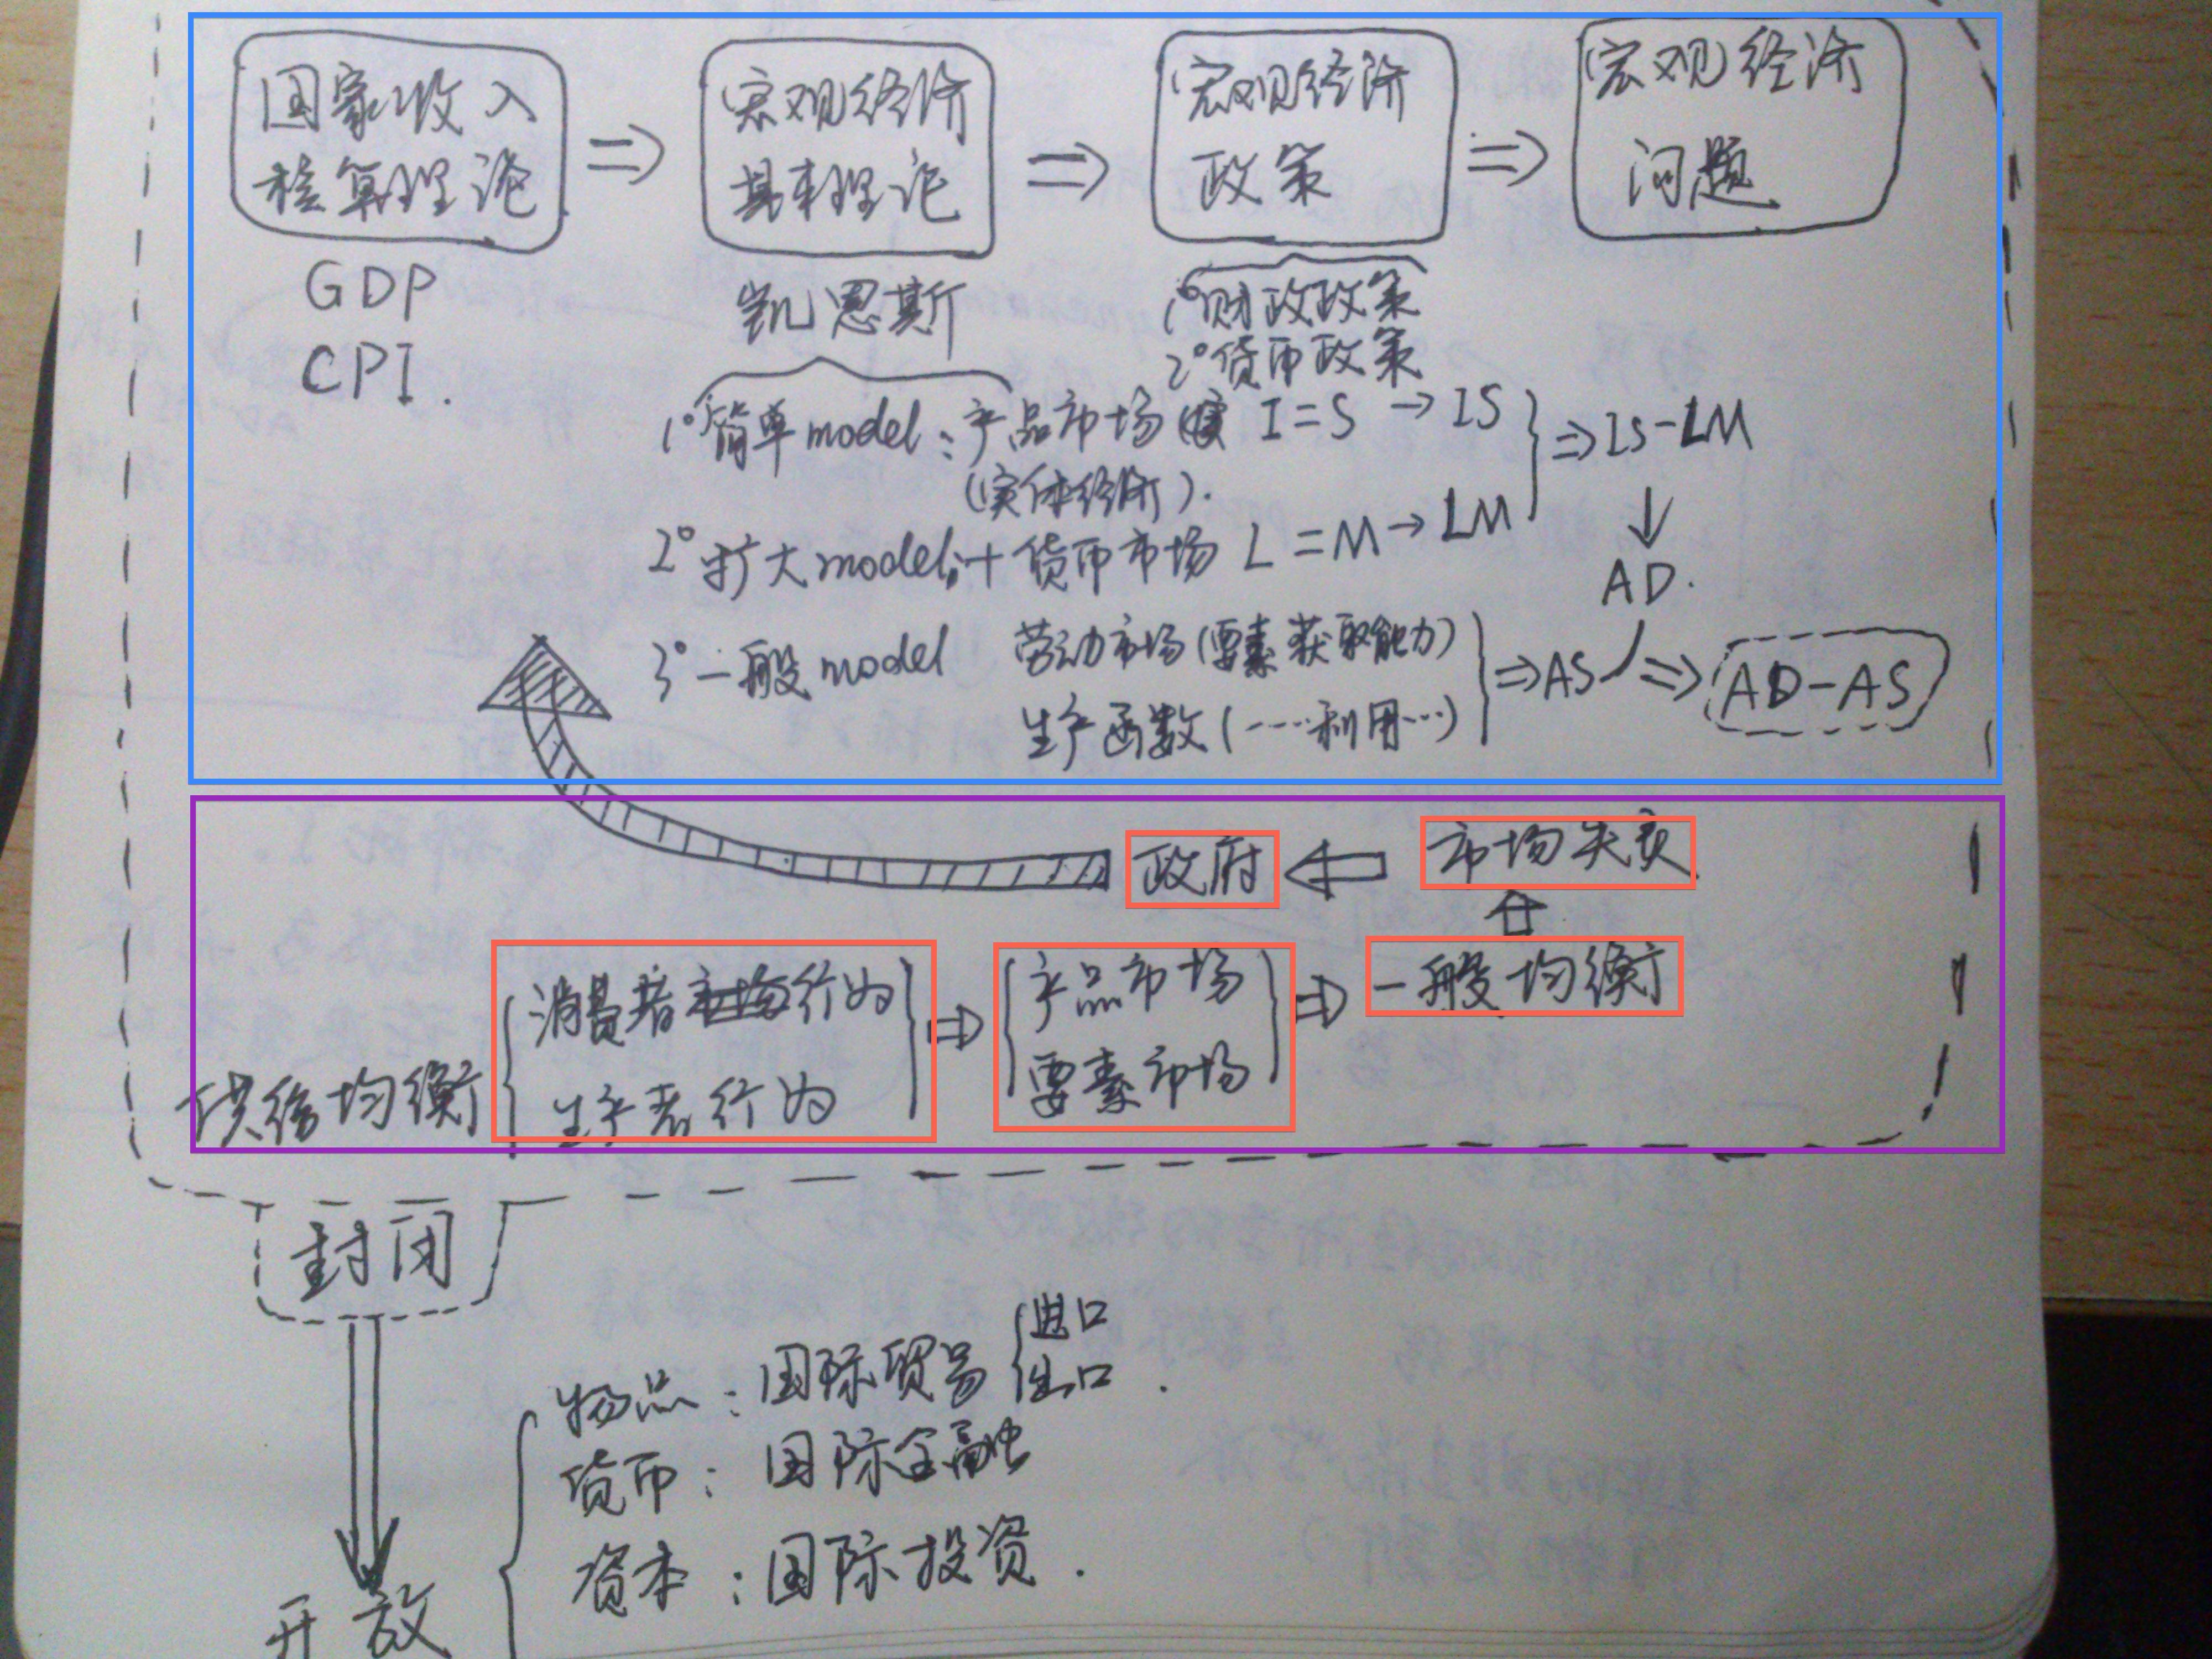 国家收入
核算理论
宏观经济
基本理论
宏观经济
政策
宏观经济
问题
GDP
CPI.
凯恩斯
1°财政政策
2°货币政策
1°简单model:产品市场 I=S → IS
(实体经济).
⇒IS-LM
2°扩大model:+货币市场 L=M→LM
↓
AD.
3°一般model 劳动市场(要素获取能力)
生产函数(……利用…)
⇒AS ⇒ AD-AS
政府
市场失灵
供给均衡
消费者行为
生产者行为
⇒
产品市场
要素市场
⇒ 一般均衡
封闭
开放
物品:国际贸易 进口
出口.
货币:国际金融
资本:国际投资.